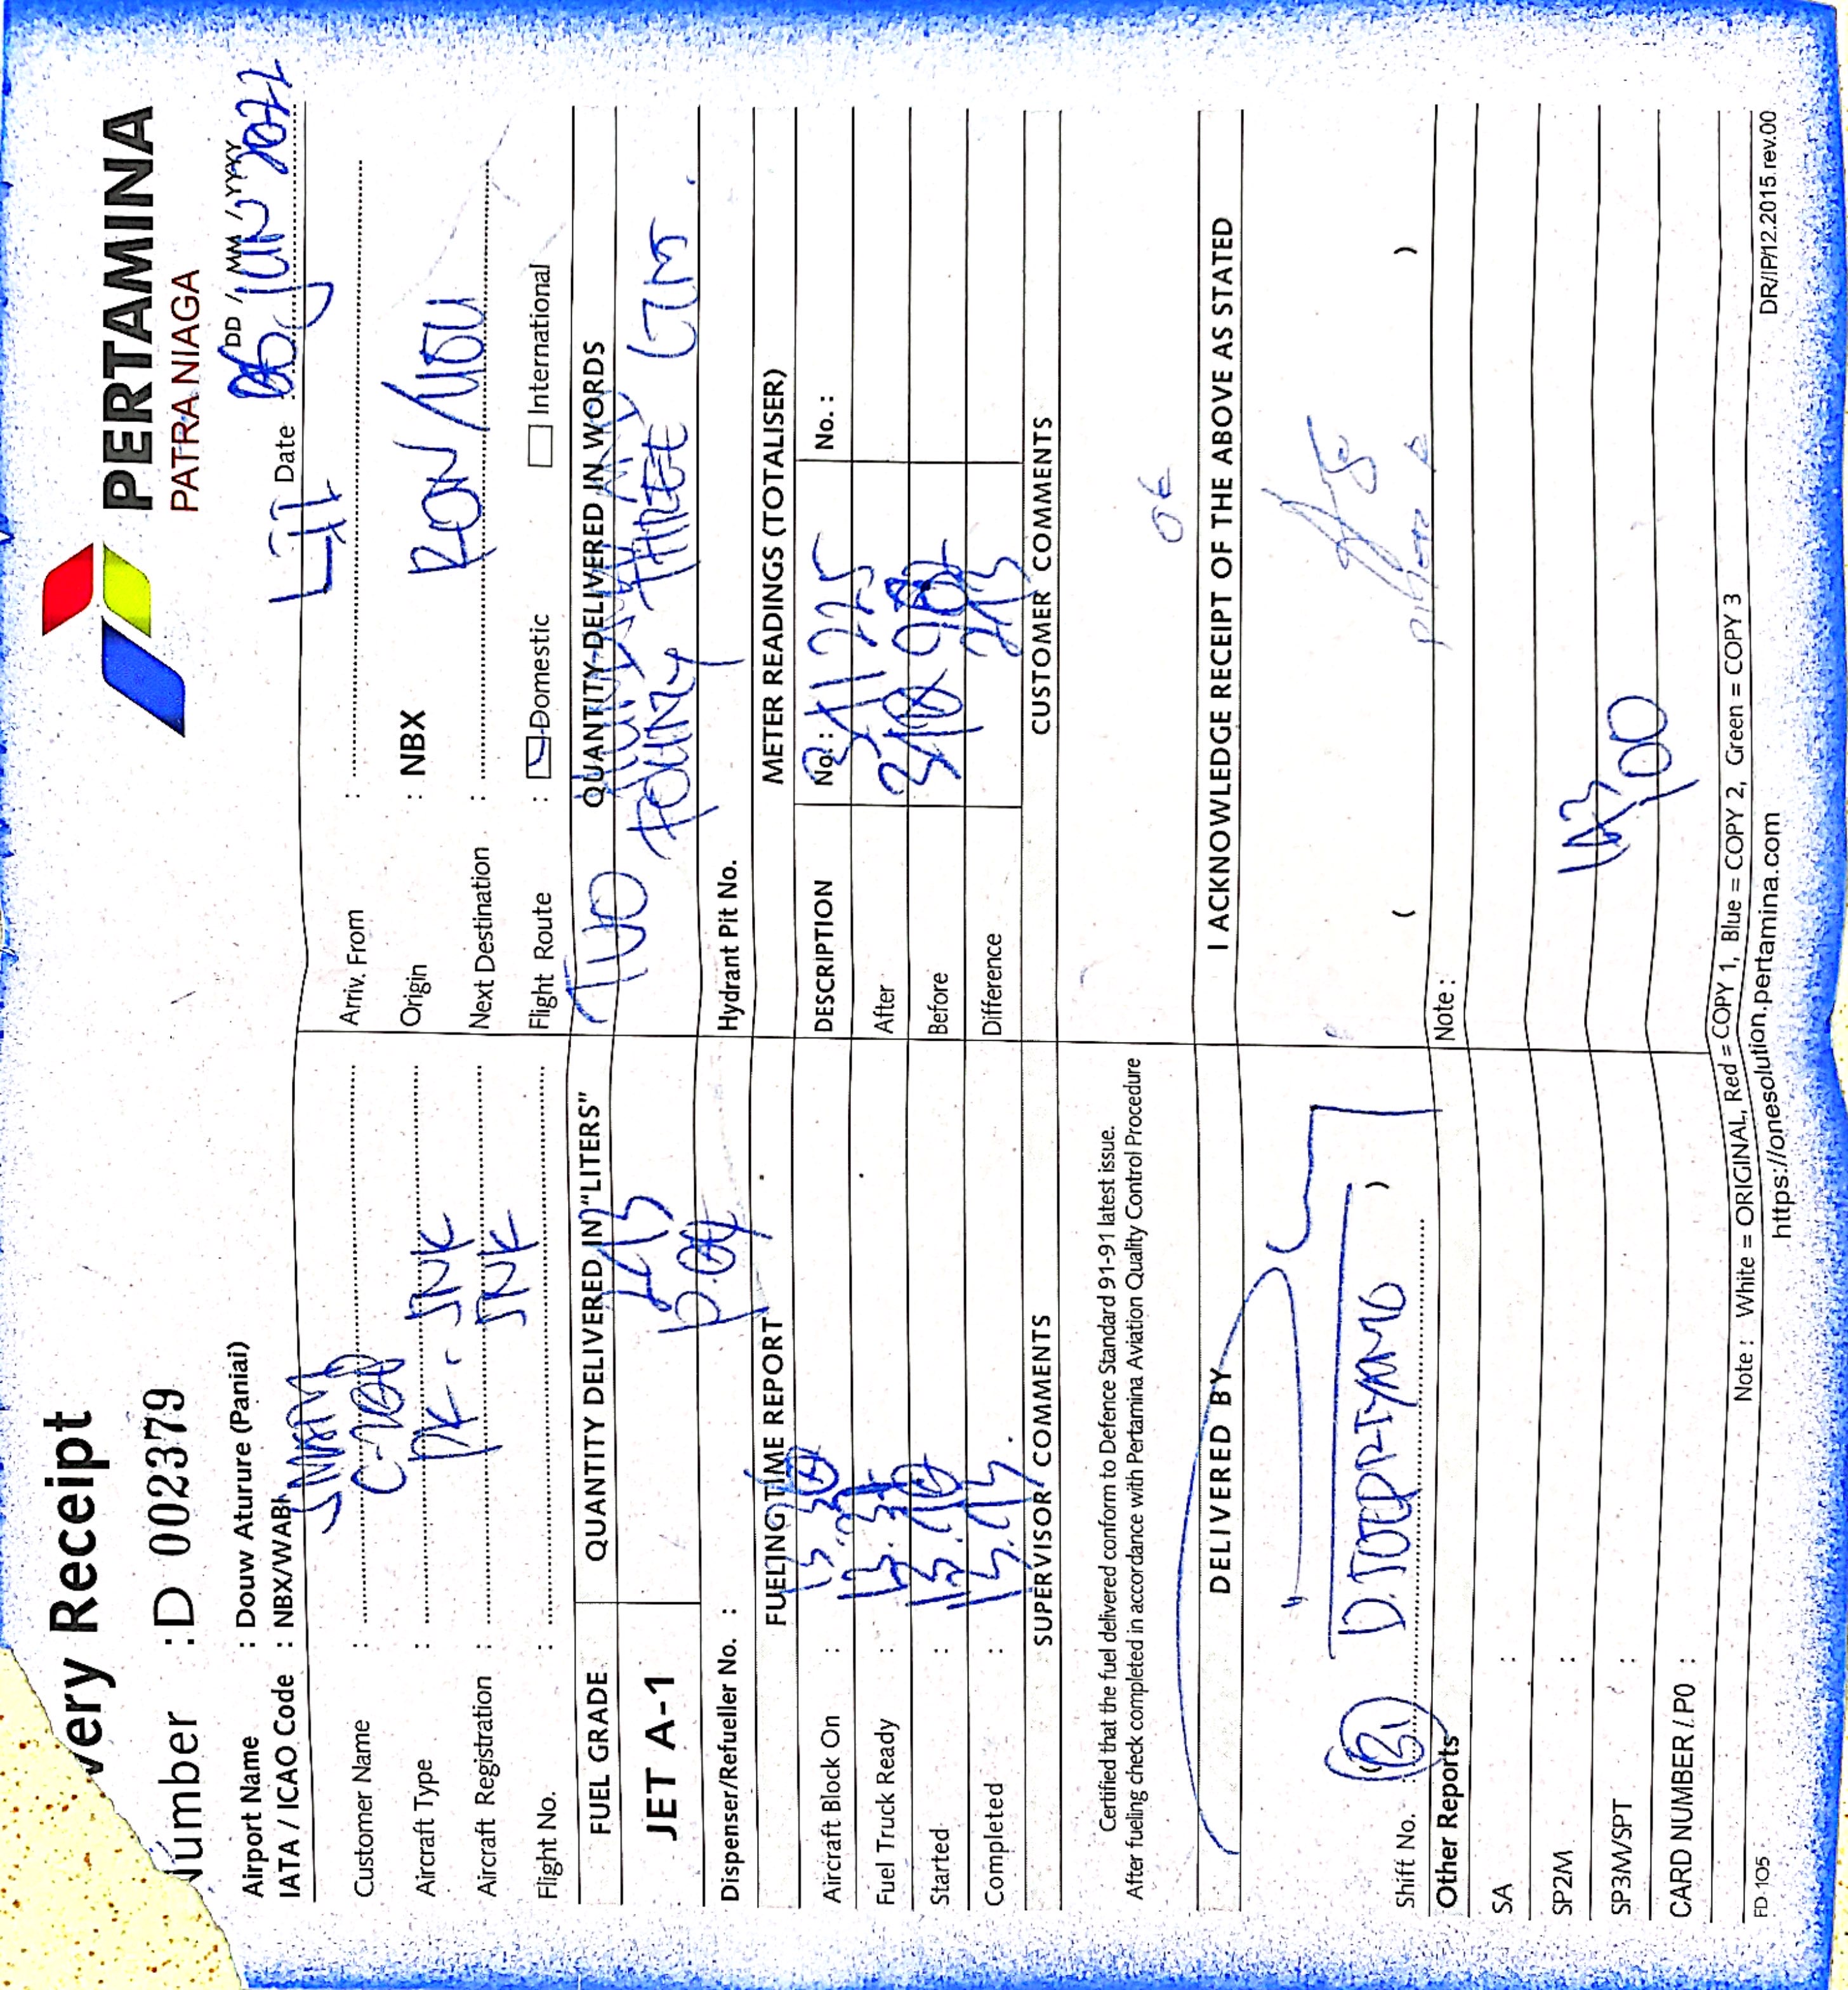 PERTAMINA
PATRA NIAGA
very Receipt
Number : D 002379
DD / MM / YYYY
Date JUN 2022
Airport Name : Douw Aturure (Paniai)
IATA / ICAO Code : NBX/WABI
Customer Name :
Arriv. From :
Aircraft Type : PK - JNK
Origin : NBX
Aircraft Registration : JNK
Next Destination : RON/
Flight No. :
Flight Route : Domestic International
FUEL GRADE
QUANTITY DELIVERED IN "LITERS"
QUANTITY DELIVERED IN WORDS
JET A-1
243
TWO HUNDRED AND
FOURTY THREE LTRS.
Dispenser/Refueller No. :
Hydrant Pit No.
FUELING TIME REPORT
METER READINGS (TOTALISER)
DESCRIPTION No.: No. :
Aircraft Block On :
Fuel Truck Ready :
After
Started :
Before
Completed :
Difference 243
SUPERVISOR COMMENTS
CUSTOMER COMMENTS
Certified that the fuel delivered conform to Defence Standard 91-91 latest issue.
After fueling check completed in accordance with Pertamina Aviation Quality Control Procedure
DELIVERED BY
I ACKNOWLEDGE RECEIPT OF THE ABOVE AS STATED
Shift No.
Other Reports
Note :
SA :
SP2M :
SP3M/SPT :
CARD NUMBER / P0 :
Note : White = ORIGINAL, Red = COPY 1, Blue = COPY 2, Green = COPY 3
FD 105
https://onesolution.pertamina.com
DR/IP/12.2015.rev.00